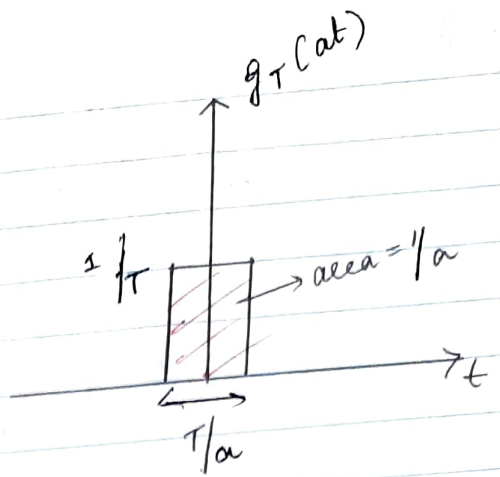 g_T(at)
1/T
area = 1/a
t
T/a